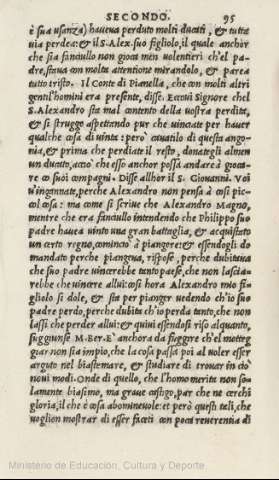 SECONDO. 95
è sua usanza) haueua perduto molti ducati, & tutta
uia perdea: & il S. Alex. suo figliolo, il quale anchor
che sia fanciullo non gioca men uolentieri ch'el pa-
dre, staua con molta attentione mirandolo, & parea
tutto tristo. Il Conte di Pianella, che con molti altri
gentil'homini era presente, disse. Eccoui Signore chel
S. Alexandro sta mal contento della uostra perdita,
& si strugge aspettando pur che uinciate per hauer
qualche cosa di uinta: però cauatilo di questa ango-
nia, & prima che perdiate il resto, donategli almen
un ducato, acciò che esso anchor possa andare à gioca-
re co suoi compagni. Disse allhor il S. Giouanni. Voi
u'ingannate, perche Alexandro non pensa à cosi pic-
col cosa: ma come si scriue che Alexandro Magno,
mentre che era fanciullo intendendo che Philippo suo
padre hauea uinto una gran battaglia, & acquistato
un certo regno, cominciò à piangere: & essendogli do
mandato perche piangeua, rispose, perche dubitaua
che suo padre uincerebbe tanto paese, che non lascia-
rebbe che uincere allui: cosi hora Alexandro mio fi-
gliolo si dole, & sta per pianger uedendo ch'io suo
padre perdo, perche dubita ch'io perda tanto, che non
lassi che perder allui: & quiui essendosi riso alquanto,
suggiunse M. Ber. E' anchora da fuggire ch'el motteg
giar non sia impio, che la cosa passa poi al uoler esser
arguto nel biastemare, & studiare di trouar in ciò
noui modi. Onde di quello, che l'homo merita non so-
lamente biasimo, ma graue castigo, par che ne cerchi
gloria, il che è cosa abomineuole: et però questi tali, che
uoglion mostrar di esser faceti con poca reuerentia di
Ministerio de Educación, Cultura y Deporte